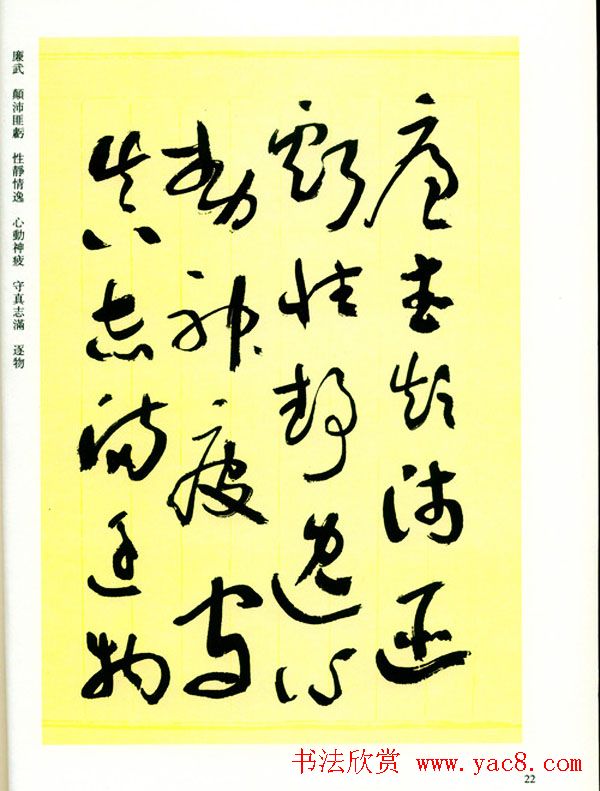 廉武顛沛匪
虧性靜逸心
動神疲守
真志滿逐物
廉武 顛沛匪虧 性靜情逸 心動神疲 守真志滿 逐物
22
书法欣赏 www.yac8.com